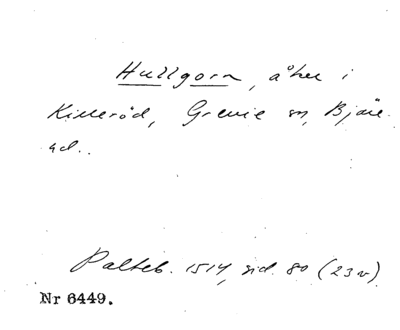 Hullgorn, åker i
Killeröd, Grevie sn, Bjäre
hd..
Palteb. 1514, sid. 80 (23v)
Nr 6449.